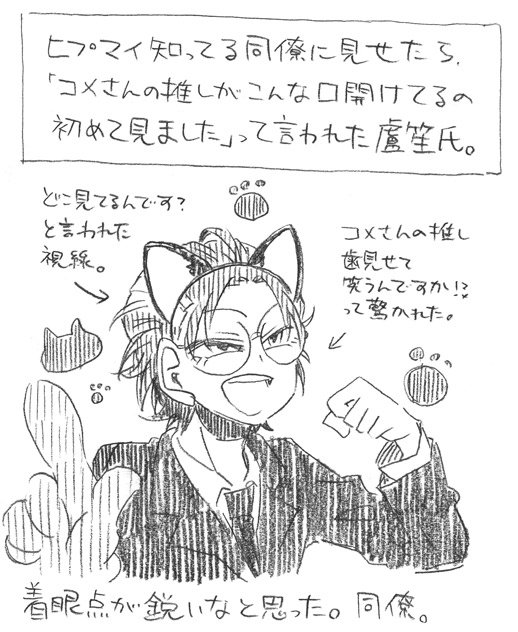 ヒプマイ知ってる同僚に見せたら、
「コメさんの推しがこんな口開けてるの
初めて見ました」って言われた盧笙氏。
どこ見てるんです？
と言われた
視線。
コメさんの推し
歯見せて
笑うんですか!?
って驚かれた。
着眼点が鋭いなと思った。同僚。